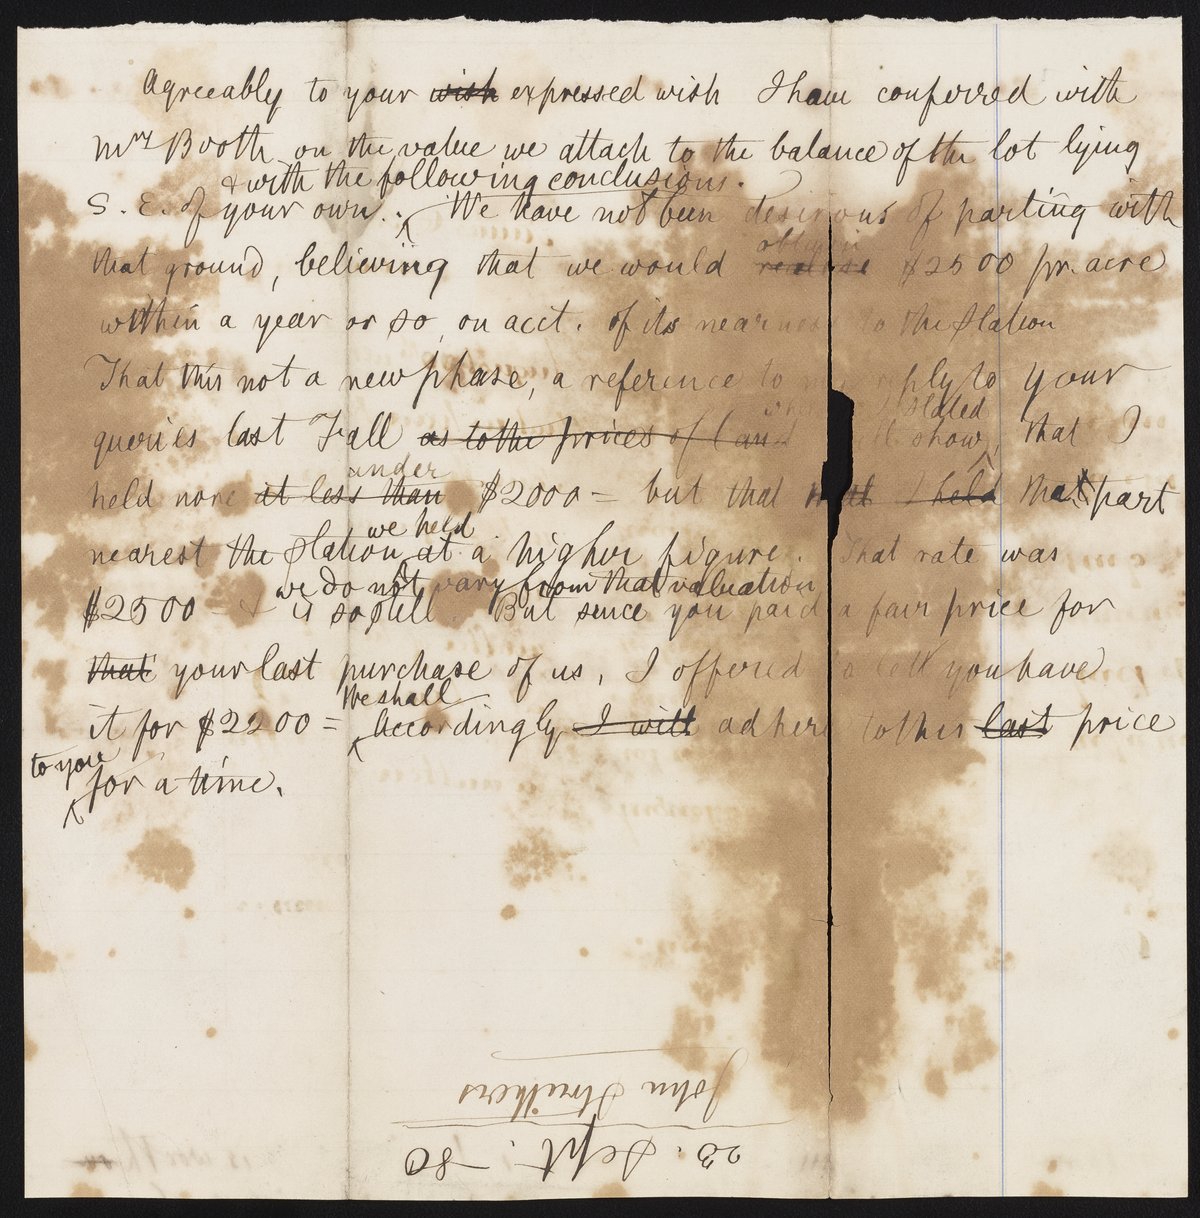 Agreeably to your wish expressed wish I have conferred with
Mrs Booth on the value we attach to the balance of the lot lying
& with the following conclusions.
S. E. of your own. We have not been desirous of parting with
obtain
that ground, believing that we would realise $2500 pr. acre
within a year or so, on acct. of its nearness to the Station
That this not a new phase, a reference to my reply to your
stated
queries last Fall as to the prices of land show, that I
under
held none at less than $2000 = but that I held that part
we held
nearest the Station at a higher figure. That rate was
we do not vary from that valuation
$2500 - & is so still. But sence you paid a fair price for
that your last purchase of us, I offered to let you have
We shall
it for $2200 = Accordingly I will adhere to this last price
to you
for a time.
John Struthers
23. Sept. - 80